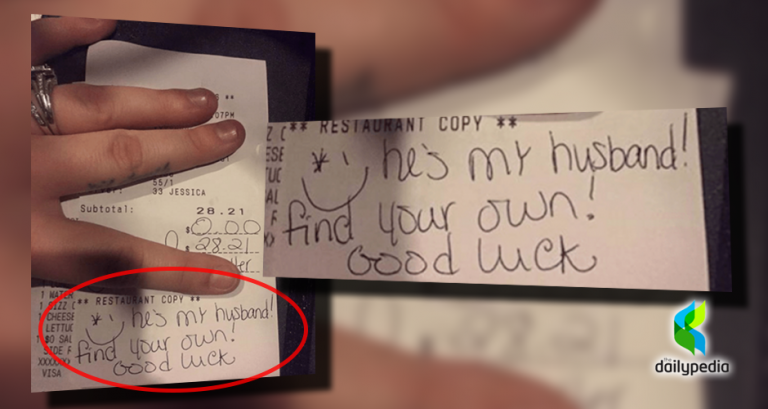 07PM
55/1
33 JESSICA
Subtotal: 28.21
$ 0.00
$ 28.21
1 WATER
** RESTAURANT COPY **
1 PIZZ C
1 CHEESE
he's my husband!
LETTUC
find your own!
SAL
Good Luck
SIDE F
VISA
** RESTAURANT COPY **
he's my husband!
find your own!
Good Luck
the
dailypedia